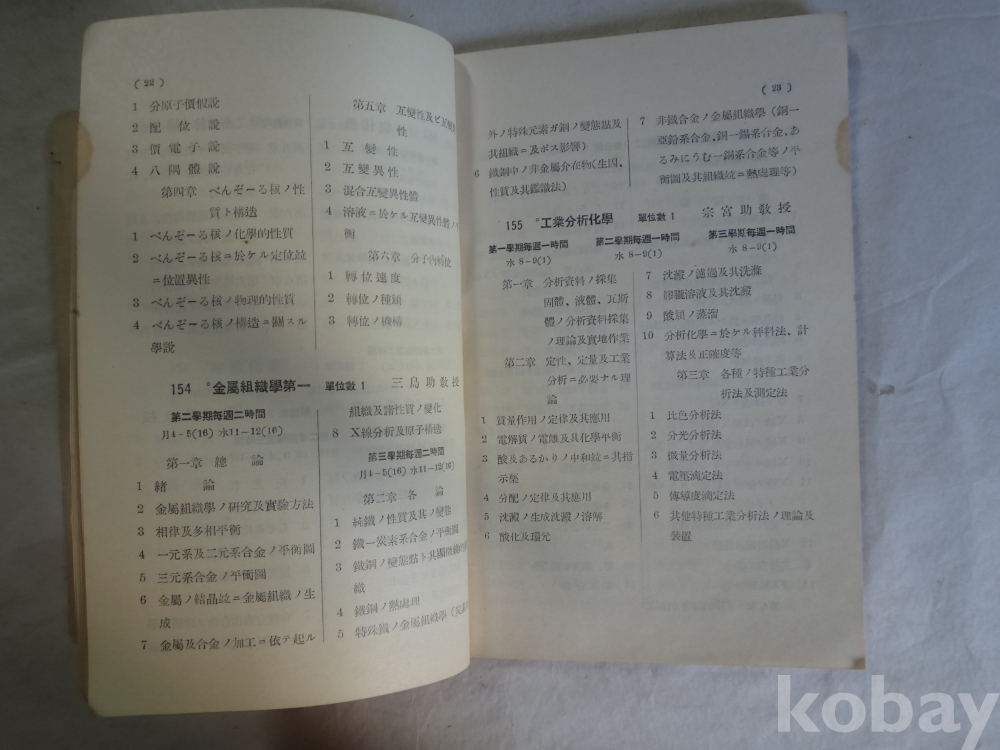 (22)
1 分原子價假說
2 配位說
3 價電子說
4 八隅體說
第四章 べんぞーる核ノ性
質ト構造
1 べんぞーる核ノ化學的性質
2 べんぞーる核ニ於ケル定位竝
ニ位置異性
3 べんぞーる核ノ物理的性質
4 べんぞーる核ノ構造ニ關スル
學說
第五章 互變性及ビ互變異
性
1 互變性
2 互變異性
3 混合互變異性體
4 溶液ニ於ケル互變異性體ノ
衡
第六章 分子內轉位
1 轉位速度
2 轉位ノ種類
3 轉位ノ機構
154 °金屬組織學第一 單位數1 三島助教授
第二學期每週二時間
月4-5(16) 水11-12(16)
第一章 總論
1 緖論
2 金屬組織學ノ研究及實驗方法
3 相律及多相平衡
4 一元系及二元系合金ノ平衡圖
5 三元系合金ノ平衡圖
6 金屬ノ結晶竝ニ金屬組織ノ生
成
7 金屬及合金ノ加工ニ依テ起ル
組織及諸性質ノ變化
8 X線分析及原子構造
第三學期每週二時間
月4-5(16) 水11-12(16)
第二章 各論
1 純鐵ノ性質及其ノ變態
2 鐵—炭素系合金ノ平衡圖
3 鐵鋼ノ變態點ト其顯微鏡的
織
4 鐵鋼ノ熱處理
5 特殊鐵ノ金屬組織學
(23)
外ノ特殊元素ガ鋼ノ變態點及
其組織ニ及ボス影響)
6 鐵鋼中ノ非金屬介在物(生因、
性質及其鑑識法)
7 非鐵合金ノ金屬組織學(銅—
亞鉛系合金、銅—錫系合金、あ
るみにうむ—銅系合金等ノ平
衡圖及其組織竝ニ熱處理等)
155 °工業分析化學 單位數1 宗宮助教授
第一學期每週一時間 第二學期每週一時間 第三學期每週一時間
水8-9(1) 水8-9(1) 水8-9(1)
第一章 分析資料ノ採集
固體、液體、瓦斯
體ノ分析資料採集
ノ理論及實地作業
第二章 定性、定量及工業
分析ニ必要ナル理
論
1 質量作用ノ定律及其應用
2 電解質ノ電離及其化學平衡
3 酸及あるかりノ中和竝ニ其指
示藥
4 分配ノ定律及其應用
5 沈澱ノ生成沈澱ノ溶解
6 酸化及還元
7 沈澱ノ濾過及其洗滌
8 膠朧溶液及其沈澱
9 酸類ノ蒸溜
10 分析化學ニ於ケル秤料法、計
算法及正確度等
第三章 各種ノ特種工業分
析法及測定法
1 比色分析法
2 分光分析法
3 微量分析法
4 電壓滴定法
5 傳導度滴定法
6 其他特種工業分析法ノ理論及
裝置
kobay